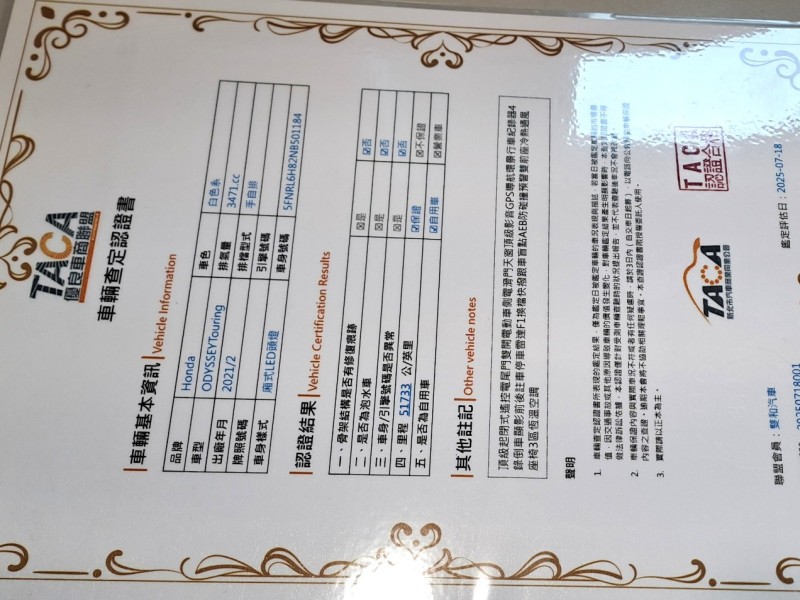 TACA
優良車商聯盟
車輛查定認證書
車輛基本資訊 | Vehicle Information
品牌 Honda 車色 白色系
車型 ODYSSEYTouring 排氣量 3471.cc
出廠年月 2021/2 排檔型式 手自排
牌照號碼 引擎號碼
車身樣式 廂式LED頭燈 車身號碼 5FNRL6H82NB501184
認證結果 | Vehicle Certification Results
一、骨架結構是否有修復痕跡 ☒是 ☑否
二、是否為泡水車 ☒是 ☑否
三、車身/引擎號碼是否異常 ☒是 ☑否
四、里程 51733 公/英里 ☑保證 ☒不保證
五、是否為自用車 ☑自用車 ☒營業車
其他註記 | Other vehicle notes
頂級起閉式遙控電尾門雙開電動車側電滑門天窗頂級影音GPS導航環景行車紀錄器4
錄倒車顯影前後註車停車雷達F1換檔快撥跟車盲點AEB防碰撞預警雙前座冷熱通風
座椅3區恆溫空調
聲明
1.
2.
3. 實際請以正本為主。
TACA
認證合格
TACA
鑑定評估日：2025-07-18
聯盟會員：雙和汽車
20250718001